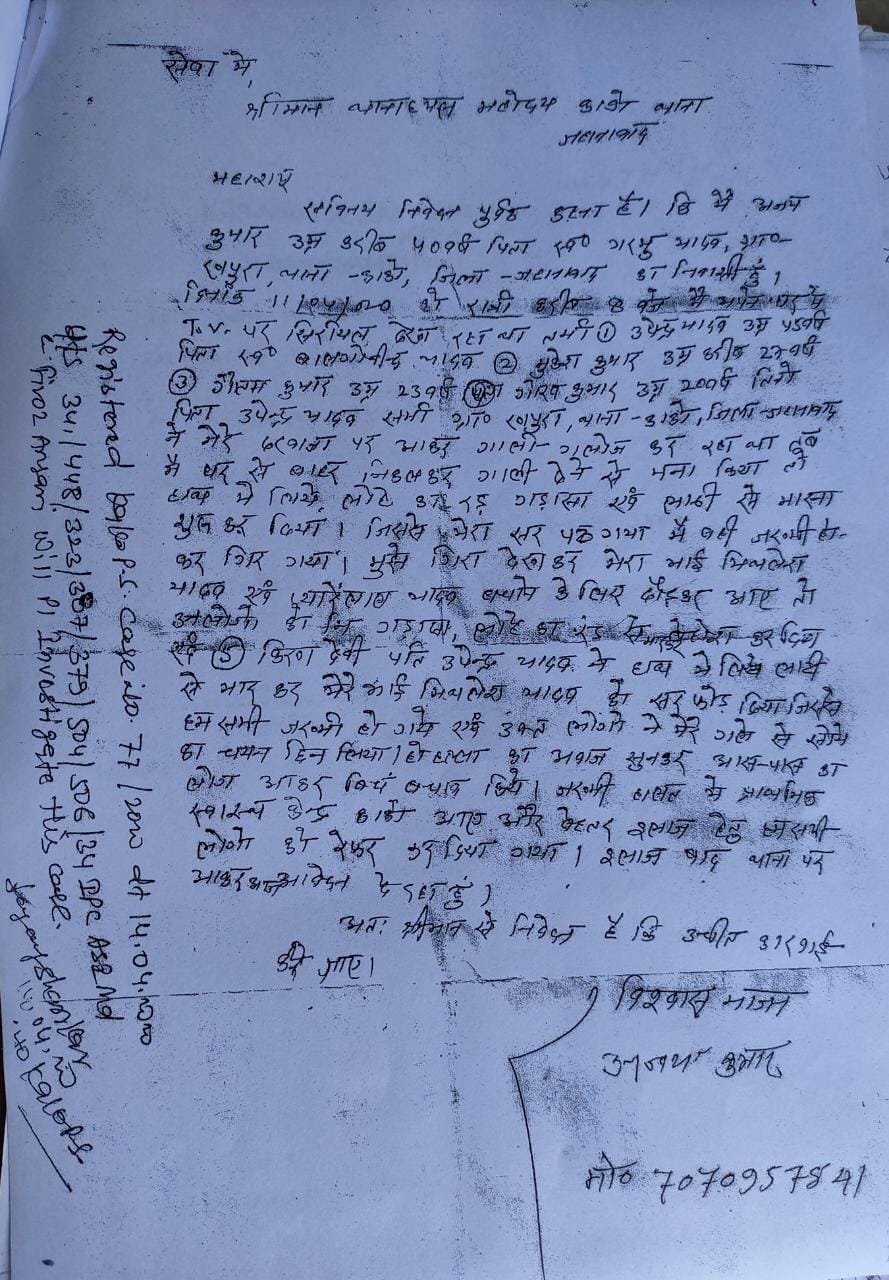 सेवा में,
श्रीमान थानाध्यक्ष महोदय काको थाना
जहानाबाद
महाशय
सविनय निवेदन पूर्वक कहना है। कि मैं अजय
कुमार उम्र करीब 40 वर्ष पिता स्व० यादव, ग्रा०-
थाना - काको, जिला - जहानाबाद का निवासी हूँ।
दिनांक 11/04/2020 को रात्री करीब 8 बजे मैं अपने घर में
T.V. पर सिरीयल देख रहा था तभी ① उपेन्द्र यादव उम्र 45 वर्ष
पिता स्व० बालगोवीन्द यादव ② कुमार उम्र करीब 27 वर्ष
③ गौतम कुमार उम्र 23 वर्ष कुमार उम्र 20 वर्ष
पिता उपेन्द्र यादव सभी ग्रा० थाना - काको, जिला - जहानाबाद
ने मेरे दरवाजा पर आकर गाली - गलौज कर रहा था तब
मैं घर से बाहर निकलकर गाली देने से मना किया तो
हाथ में लिये, लोहे का रड़ गड़ासा एवं लाठी से मारना
शुरू कर दिया। जिससे मेरा सर फट गया मैं वही जख्मी हो-
कर गिर गया। मुझे गिरा देखकर मेरा भाई मिथलेश
यादव एवं प्यारेलाल यादव बचाने के लिए दौड़कर आए तो
गड़ासा, लोहे का रड़ से कर दिया
एवं ⑤ किरण देवी पति उपेन्द्र यादव ने हाथ में लिये लाठी
से मार कर मेरे भाई मिथलेश यादव का सर फोड़ दिया जिससे
हम सभी जख्मी हो गये एवं उक्त लोगो ने मेरे गले से सोने
का चयन छिन लिया। हो हल्ला का अवाज सुनकर आस-पास का
लोग आकर बिच बचाव किये। जख्मी हालत में प्राथमिक
स्वास्थ्य केन्द्र काको आए और बेहतर इलाज हेतु हम सभी
लोगो को रेफर कर दिया गया। इलाज बाद थाना पर
आकर आवेदन दे रहा हूँ।
अत: श्रीमान से निवेदन है कि उचीत कारवाई
की जाए।
विश्वास भाजन
अजय कुमार
मो० 7070957841
Registered Kako P.S. Case no 77/2020 dt 14.04.2020
u/s 341/448/323/387/379/504/506/34 IPC ASI Md
Firoz Ansari will Pl Investigate this case.